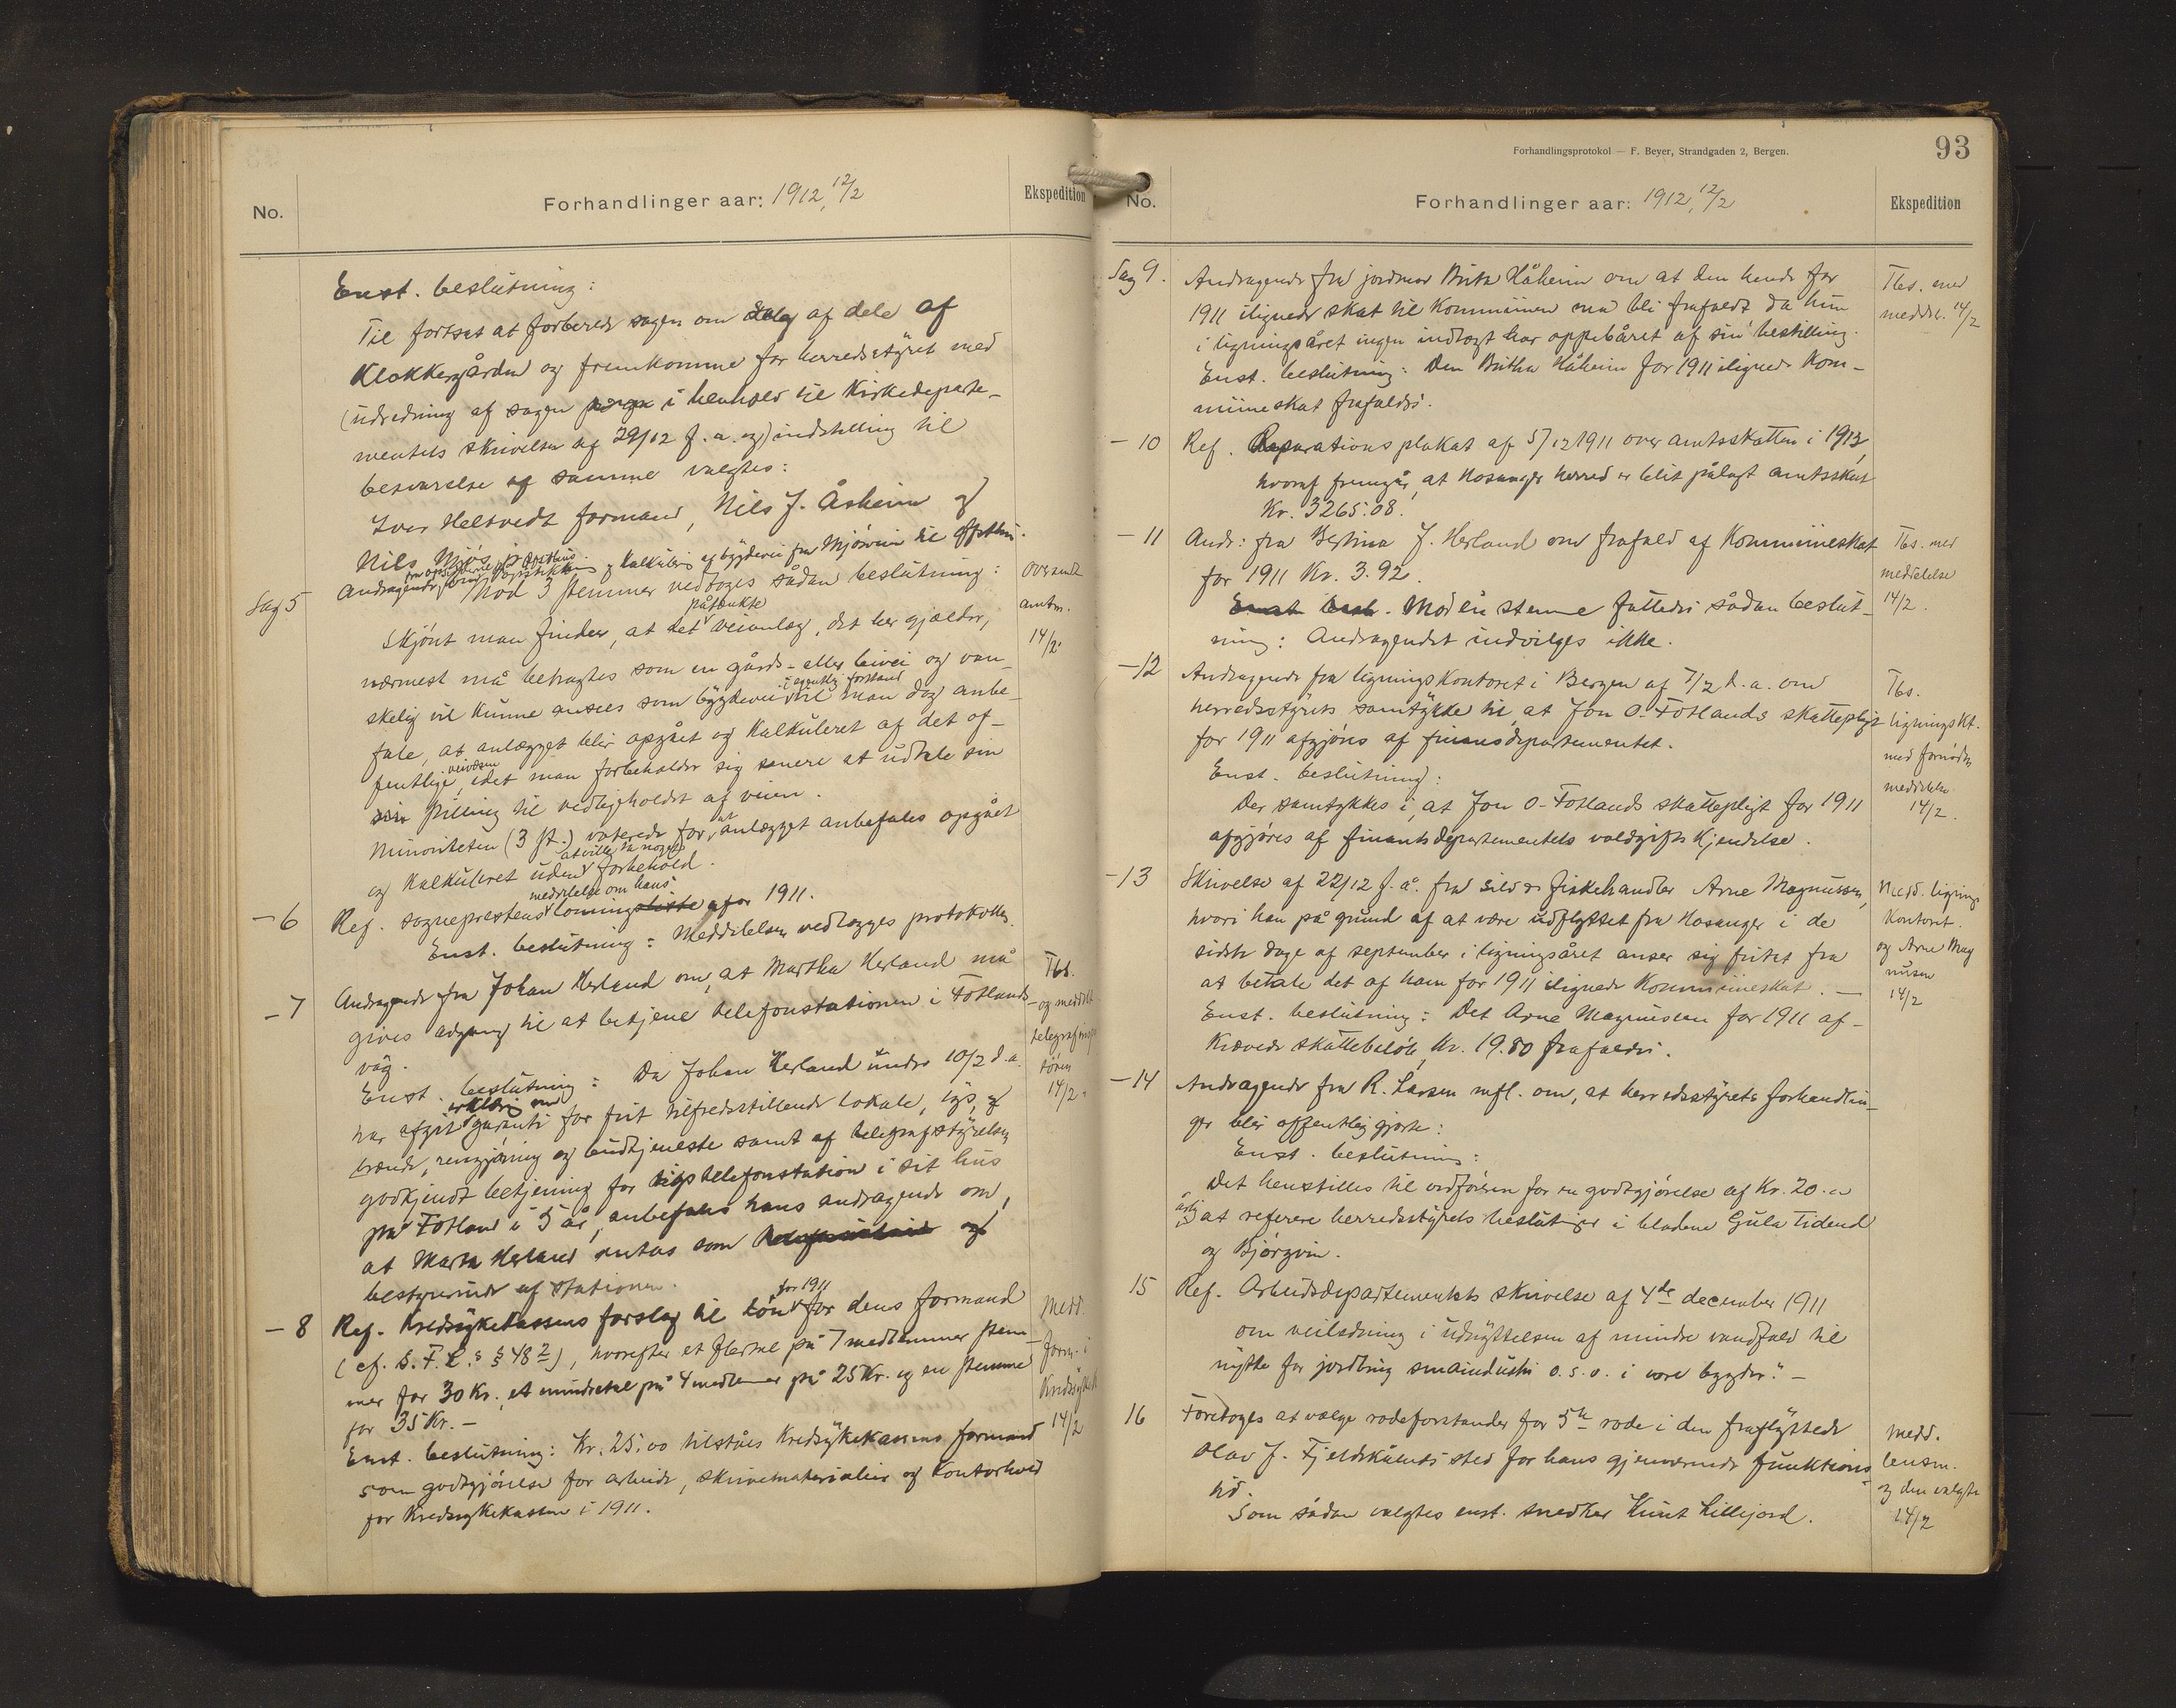 No.
Forhandlinger aar: 1912, 12/2
Ekspedition
Enst. beslutning:
Til fortsat at forberede sagen om salg af dele af
Klokkergården og fremkomme for herredsstyret med
(udredning af sagen i henhold til Kirkedeparte-
mentets skrivelse af 29/12 f. a. og) indstilling til
besvarelse af samme valgtes:
Iver Heltvedt formand, Nils J. Åsheim og
Nils Mjøs
Sag 5 Andragende om opstikking og kalkulering af bygdevei fra Mjøsvein til
Mod 3 stemmer vedtoges sådan beslutning:
Skjønt man finder, at det påtænkte veianlæg, det her gjælder,
nærmest må betragtes som en gårds- eller bivei og van-
skelig vil kunne ansees som bygdevei i egentlig forstand vil man dog anbe-
fale, at anlægget blir opgået og kalkuleret af det of-
fentlige veivæsen, idet man forbeholder sig senere at udtale sin
stilling til vedligeholdet af veien.
Minoriteten (3 st.) voterede for, at anlægget anbefales opgået
og kalkuleret uden at ville ta noget forbehold.
oversendt
amtm.
14/2.
- 6 Ref. sogneprestens meddelelse om hans lønning for 1911.
Enst. beslutning: Meddelelsen vedlægges protokollen.
- 7 Andragende fra Johan Herland om, at Martha Herland må
gives adgang til at betjene telefonstationen i Fotlands-
våg.
Enst. beslutning: Da Johan Herland under 10/2 d. a.
har afgit erklæring om garanti for frit tilfredsstillende lokale, lys, og
brænde, rengjøring og budtjeneste samt af telegrafstyrelsen
godkjendt betjening for rigstelefonstation i sit hus
på Fotland i 5 år, anbefales hans andragende om,
at Marta Herland antas som
bestyrerinde af stationen.
Tbs.
og meddelt
14/2.
- 8 Ref. Kredssykekassens forslag til løn for 1911 for dens formand
(cf. S. F. L. § 48 2), hvorefter et flertal på 7 medlemmer stem-
mer for 30 Kr., et mindretal på 4 medlemmer på 25 Kr. og en stemme
for 35 Kr. -
Enst. beslutning: Kr. 25,00 tilståes Kredssykekassens formand
som godtgjørelse for arbeide, skrivematerialier og kontorhold
for Kredssykekassen i 1911.
Medd.
form. i
14/2
Forhandlingsprotokol — F. Beyer, Strandgaden 2, Bergen.
93
No.
Forhandlinger aar: 1912, 12/2
Ekspedition
Sag 9. Andragende fra jordmor Brita Håheim om at den hende for
1911 ilignede skat til Kommunen må bli frafaldt da hun
i ligningsåret ingen indtægt har oppebåret af sin bestilling.
Enst. beslutning: Den Britha Håheim for 1911 ilignede kom-
muneskat frafaldes.
Tbs. med
meddel. 14/2
- 10 Ref. Reparationsplakat af 5/12 1911 over amtsskatten i 1912,
hvoraf fremgår, at Hosanger herred er blit pålagt amtsskat
Kr. 3265.08.
- 11 Andr: fra Bertina J. Herland om frafald af Kommuneskat
for 1911 Kr. 3.92.
Enst. besl. Mod én stemme fattedes sådan beslut-
ning: Andragendet indvilges ikke.
Tbs. med
meddelelse
14/2.
- 12 Andragende fra ligningskontoret i Bergen af 7/2 d. a. om
herredsstyrets samtykke til, at Jon O. Fotlands skattepligt
for 1911 afgjøres af finansdepartementet.
Enst. beslutning:
Der samtykkes i, at Jon O. Fotlands skattepligt for 1911
afgjøres af finantsdepartementets voldgiftskjendelse.
Tbs.
ligningskt.
med fornøden
meddelelse
14/2.
- 13 Skrivelse af 22/12 f. å. fra sild og fiskehandler Arne Magnussen,
hvori han på grund af at være udflyttet fra Hosanger i de
sidste dage af september i ligningsåret anser sig fritat fra
at betale det af ham for 1911 ilignede Kommuneskat. —
Enst. beslutning: Det Arne Magnussen for 1911 af-
krævede skattebeløb, Kr. 19.80 frafaldes.
Medd. lignings
Kontoret.
og Arne Mag
nusen
14/2
- 14 Andragende fra R. Larsen mfl. om, at herredsstyrets forhandlin-
ger blir offentliggjorte:
Enst. beslutning:
Det henstilles til ordføreren for en godtgjørelse af Kr. 20.00
årlig at referere herredsstyrets beslutninger i bladene Gula Tidend
og Bjørgvin.
15 Ref. Arbeidsdepartementets skrivelse af 4de december 1911
om veiledning i udnyttelsen af mindre vandfald til
nytte for jordbrug småindustri o. s. v. i vore bygder." -
16 Foretoges at vælge rodeforstander for 5te rode i den fraflyttede
Olav J. Fjeldskaalnes sted for hans gjenværende funktions-
tid.
Som sådan valgtes enst. snedker Knut Lillejord.
Medd.
lensm.
og den valgte
14/2